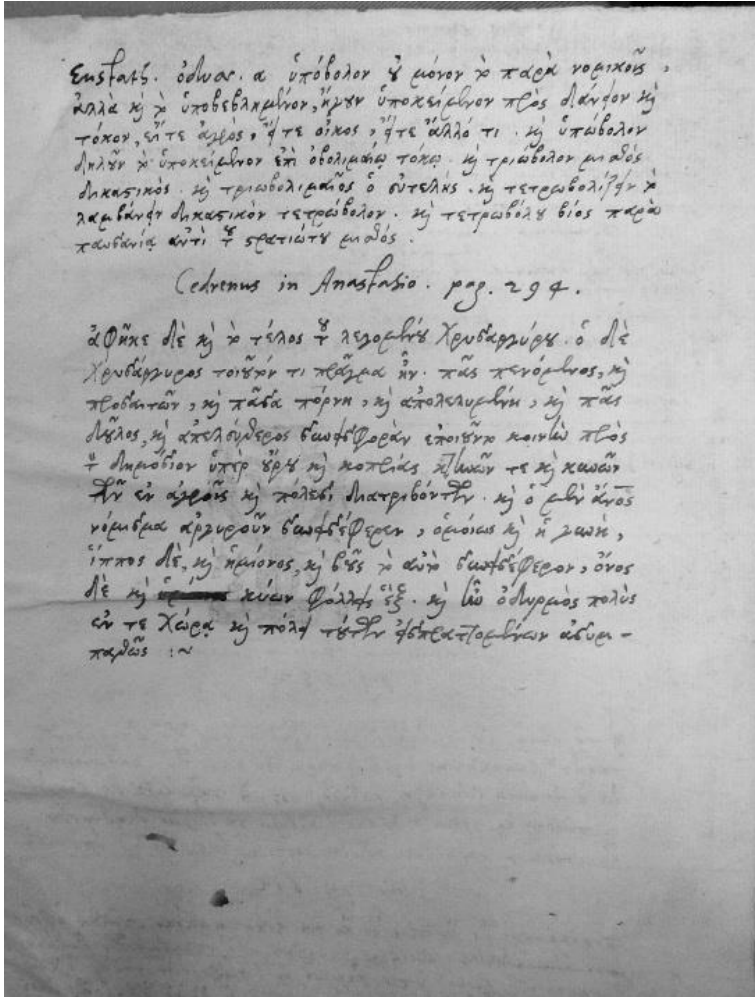 Eustath. ὀδυσ. α ὑπόβολον οὐ μόνον τὸ παρὰ νομικοῖς,
ἀλλὰ καὶ τὸ ὑποβεβλημένον, ἤγουν ὑποκείμενον πρὸς δάνειον καὶ
τόκον, εἴτε ἀγρὸς, εἴτε οἶκος, εἴτε ἄλλό τι. καὶ ὑπώβολον
δηλοῦν τὸ ὑποκείμενον ἐπὶ ὀβολιμαίῳ τόκῳ. καὶ τριώβολον μισθὸς
δικαστικὸς. καὶ τριωβολιμαῖος ὁ εὐτελής. καὶ τετρωβολίζειν τὸ
λαμβάνειν δικαστικὸν τετρώβολον. καὶ τετρωβόλου βίος παρὰ
παυσανίᾳ αντὶ τοῦ στρατιώτου μισθός.
Cedrenus in Anastasio. pag. 294.
ἀφῆκε δὲ καὶ τὸ τέλος τοῦ λεγομένου Χρυσαργύρου. ὁ δὲ
Χρυσάργυρος τοιοῦτόν τι πρᾶγμα ἦν. πᾶς πενόμενος, καὶ
προσαιτῶν, καὶ πᾶσα πόρνη, καὶ ἀπολελυμένη, καὶ πᾶς
δοῦλος, καὶ ἀπελεύθερος συνεισφορὰν ἐποιοῦντο κοινὴν πρὸς
τὸ δημόσιον ὑπὲρ οὔρου καὶ κοπρίας κτηνῶν τε καὶ κυνῶν
τῶν ἐν ἀγροῖς καὶ πόλεσι διατριβόντων. καὶ ὁ μὲν ἄνος
νόμισμα αργυροῦν συνεισέφερεν, ὁμοίως καὶ ἡ γυνή,
ἵππος δὲ, καὶ ἡμίονος, καὶ βοῦς τὸ αὐτὸ συνεισέφερον, ὄνος
δὲ καὶ κύων φόλλεις ἕξ. καὶ ἦν ὀδυρμὸς πολὺς
ἐν τε χώρᾳ καὶ πόλει τούτων εἰσπραττομένων ἀσυμ-
παθῶς :~